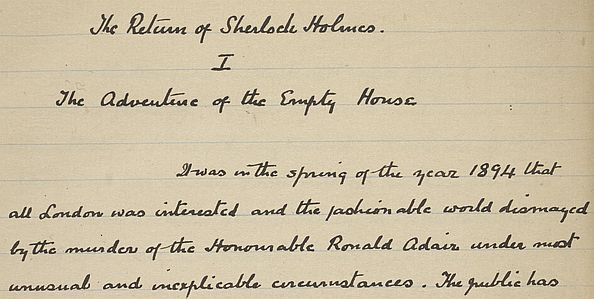 The Return of Sherlock Holmes.
I
The Adventure of the Empty House
It was in the spring of the year 1894 that
all London was interested and the fashionable world dismayed
by the murder of the Honourable Ronald Adair under most
unusual and inexplicable circumstances. The public has